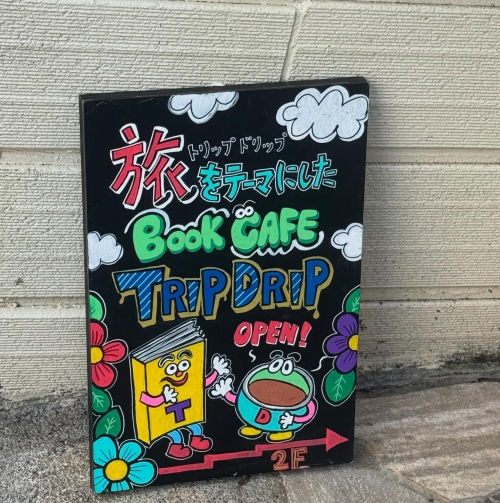 トリップ ドリップ
旅をテーマにした
BOOK CAFE
TRIP DRIP
OPEN!
T
D
2F